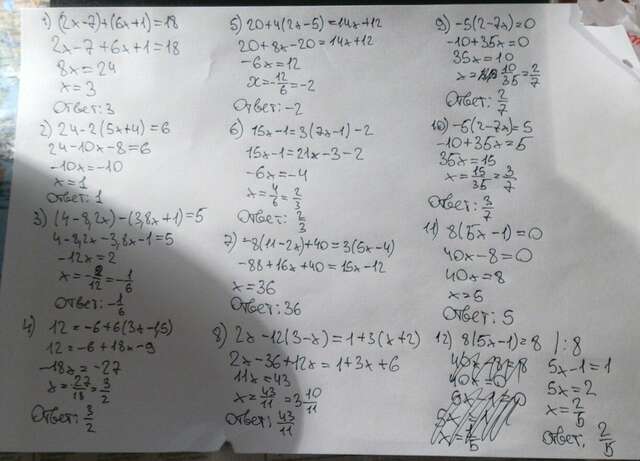 1) (2x-7)+(6x+1)=18
2x-7+6x+1=18
8x=24
x=3
Ответ: 3
2) 24-2(5x+4)=6
24-10x-8=6
-10x=-10
x=1
Ответ: 1
3) (4-8,2x)-(3,8x+1)=5
4-8,2x-3,8x-1=5
-12x=2
x=-2/12=-1/6
Ответ: -1/6
4) 12=-6+6(3x-1,5)
12=-6+18x-9
-18x=-27
x=27/18=3/2
Ответ: 3/2
5) 20+4(2x-5)=14x+12
20+8x-20=14x+12
-6x=12
x=-12/6=-2
Ответ: -2
6) 15x-1=3(7x-1)-2
15x-1=21x-3-2
-6x=-4
x=4/6=2/3
Ответ: 2/3
7) -8(11-2x)+40=3(5x-4)
-88+16x+40=15x-12
x=36
Ответ: 36
8) 2x-12(3-x)=1+3(x+2)
2x-36+12x=1+3x+6
11x=43
x=43/11=3 10/11
Ответ: 43/11
9) -5(2-7x)=0
-10+35x=0
35x=10
x=10/35=2/7
Ответ: 2/7
10) -5(2-7x)=5
-10+35x=5
35x=15
x=15/35=3/7
Ответ: 3/7
11) 8(5x-1)=0
40x-8=0
40x=8
x=5
Ответ: 5
12) 8(5x-1)=8 /:8
5x-1=1
5x=2
x=2/5
Ответ: 2/5